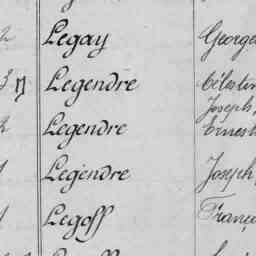 2 Legay George
3 Legendre Célestin
Joseph,
2 Legendre Ernest
1 Legendre Joseph,
1 Legoff França